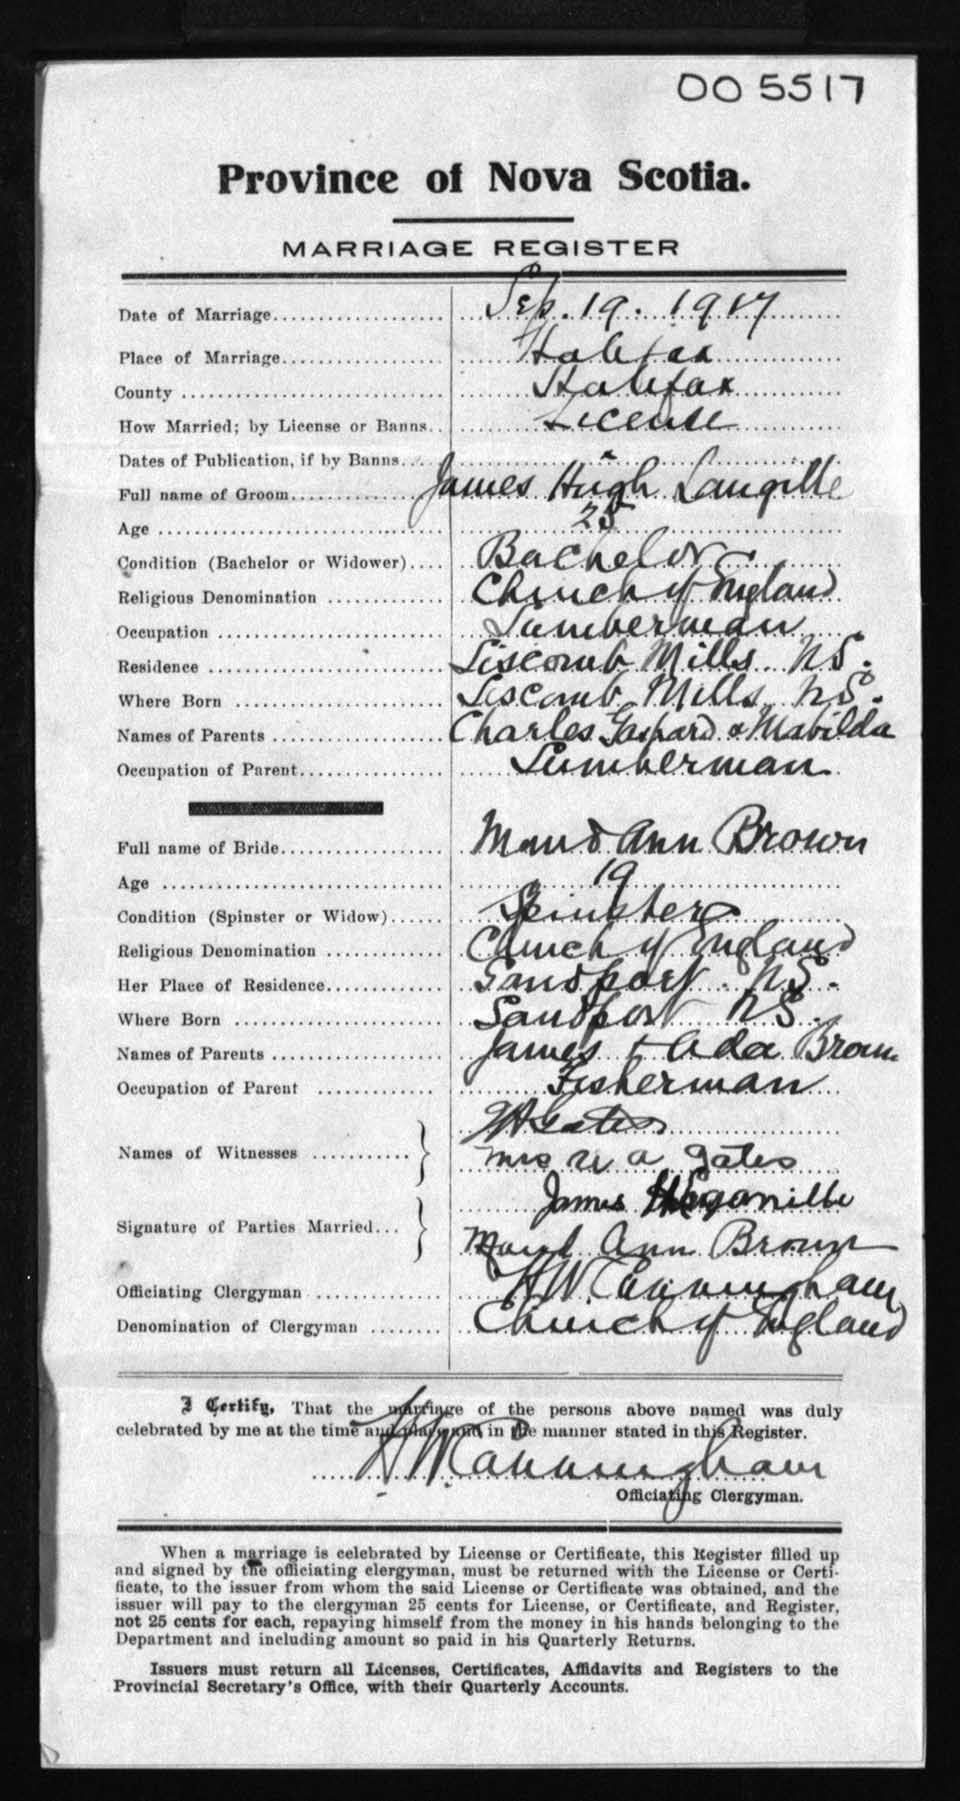 005517
Province of Nova Scotia.
MARRIAGE REGISTER
Date of Marriage Sep. 19. 1917
Place of Marriage Halifax
County Halifax
How Married; by License or Banns License
Dates of Publication, if by Banns
Full name of Groom James Hugh Langille
Age 25
Condition (Bachelor or Widower) Bachelor
Religious Denomination Church of England
Occupation Lumberman
Residence Liscomb Mills NS.
Where Born Liscomb Mills NS.
Names of Parents Charles Gaspard & Matilda
Occupation of Parent Lumberman
Full name of Bride Maud Ann Brown
Age 19
Condition (Spinster or Widow) Spinster
Religious Denomination Church of England
Her Place of Residence Sandport. NS.
Where Born Sandport NS.
Names of Parents James & Ada Brown
Occupation of Parent Fisherman
Gates
Names of Witnesses
Mrs W A Gates
James
Signature of Parties Married
Maud Ann Brown
Officiating Clergyman H.W. Cunningham
Denomination of Clergyman Church of England
I Certify, That the marriage of the persons above named was duly
celebrated by me at the time and place and in the manner stated in this Register.
HW Cunningham
Officiating Clergyman.
When a marriage is celebrated by License or Certificate, this Register filled up
and signed by the officiating clergyman, must be returned with the License or Certi-
ficate, to the issuer from whom the said License or Certificate was obtained, and the
issuer will pay to the clergyman 25 cents for License, or Certificate, and Register,
not 25 cents for each, repaying himself from the money in his hands belonging to the
Department and including amount so paid in his Quarterly Returns.
Issuers must return all Licenses, Certificates, Affidavits and Registers to the
Provincial Secretary's Office, with their Quarterly Accounts.